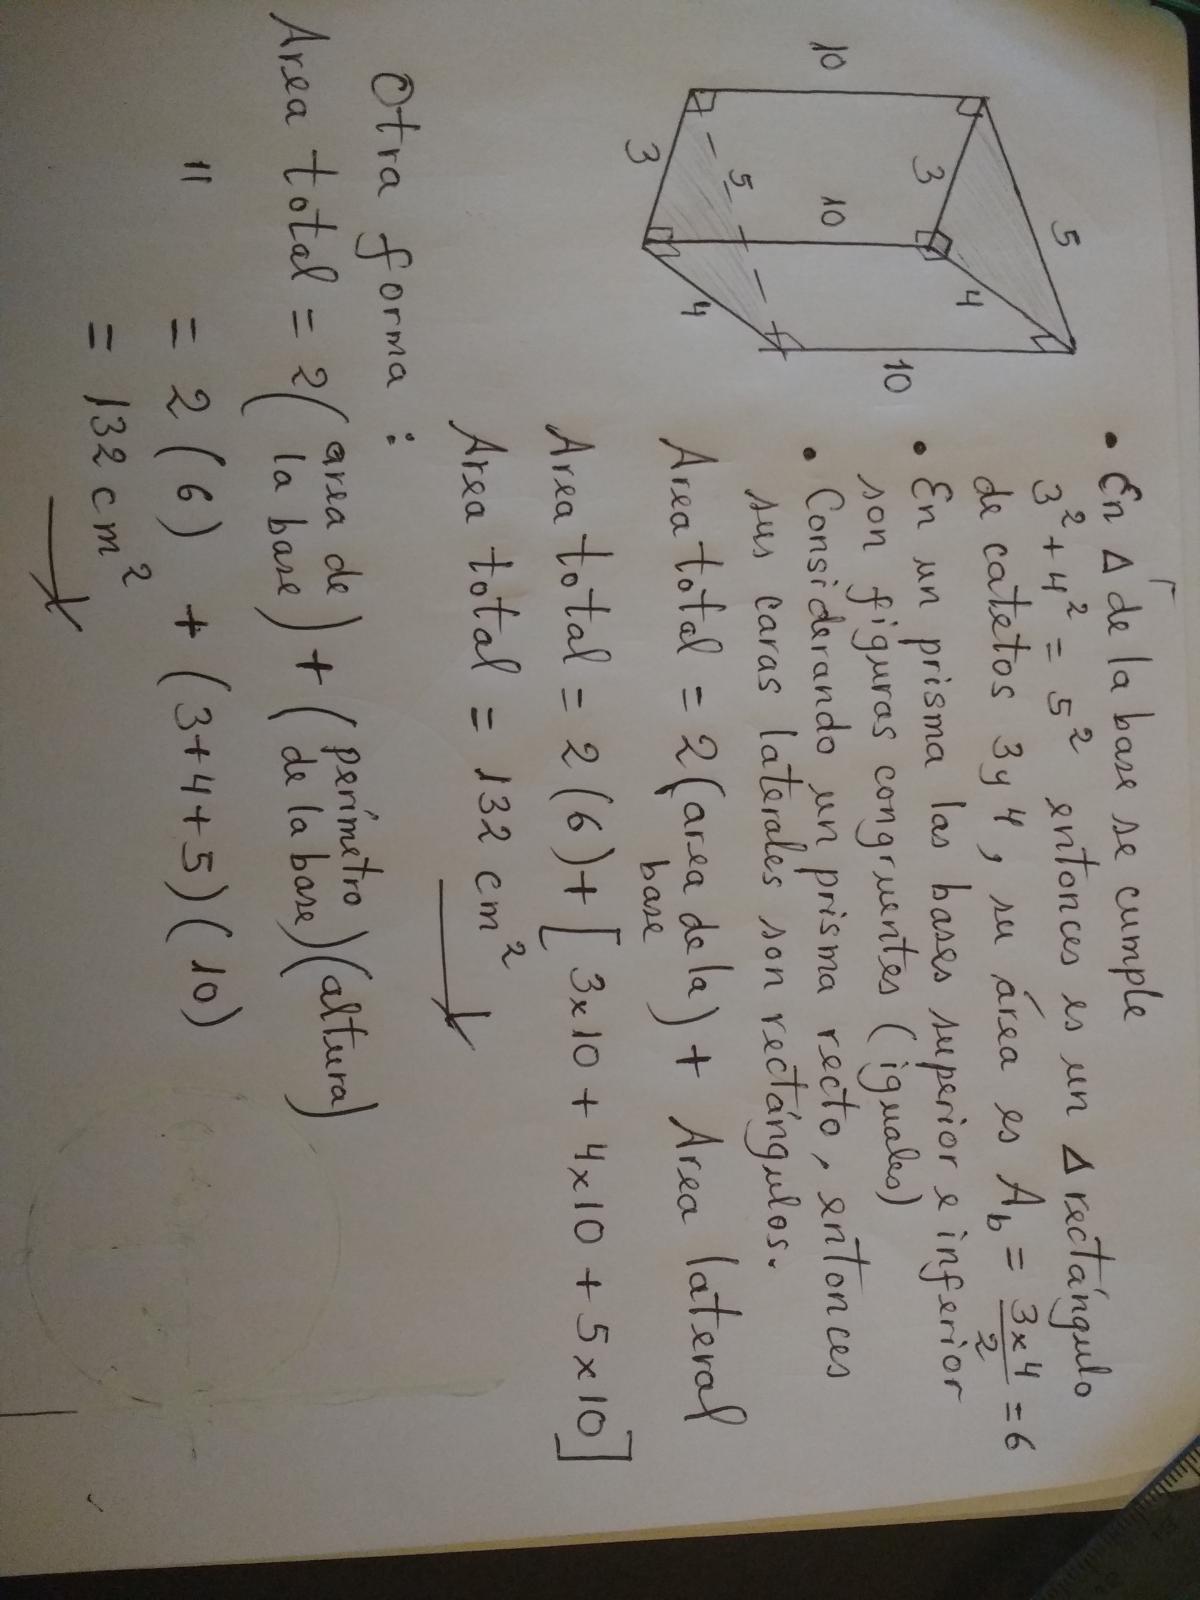 10
3
5
10
3
4
5
4
10
• En Δ de la base se cumple
3² + 4² = 5² entonces es un Δ rectángulo
de catetos 3 y 4, su área es A_b = 3x4/2 = 6
• En un prisma las bases superior e inferior
son figuras congruentes (iguales)
• Considerando un prisma recto, entonces
sus caras laterales son rectángulos.
Area total = 2(area de la base) + Area lateral
Area total = 2(6) + [3x10 + 4x10 + 5x10]
Area total = 132 cm²
Otra forma :
Area total = 2(area de la base) + (perímetro de la base)(altura)
" = 2(6) + (3+4+5)(10)
= 132 cm²